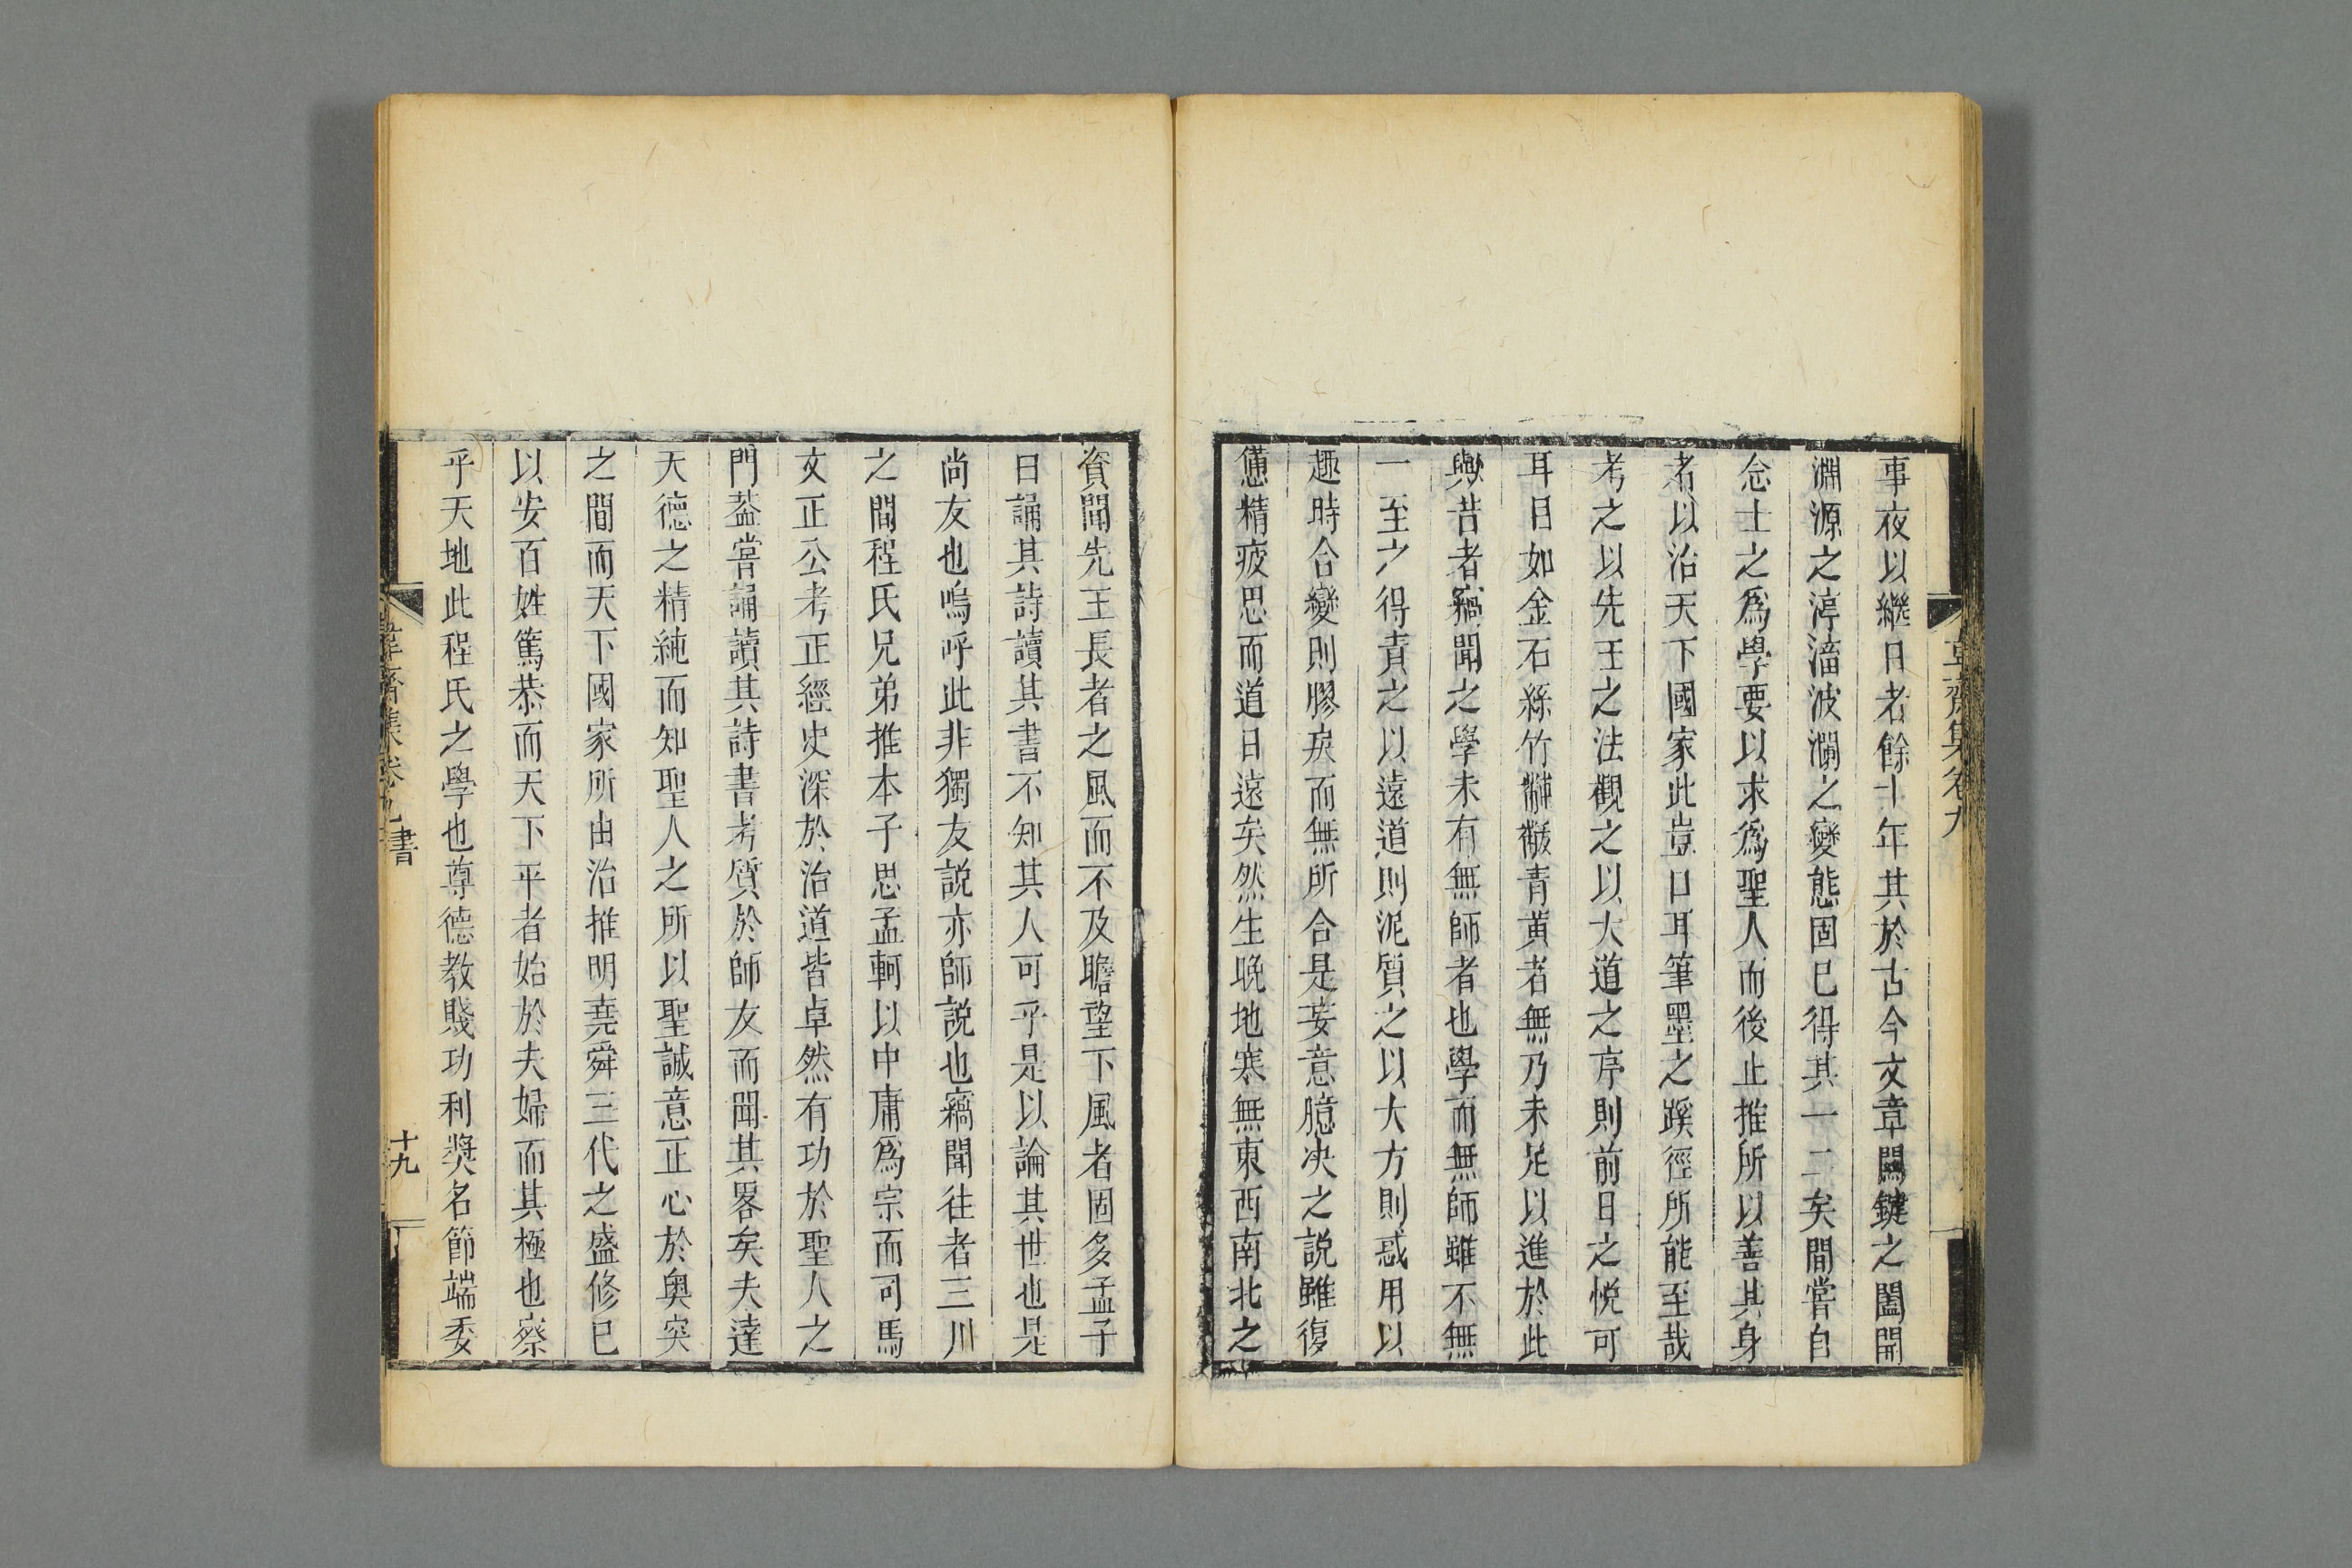 事夜以繼日者餘十年其於古今文章關鍵之闔開
淵源之渟滀波瀾之變態固已得其一二矣間嘗自
念士之爲學要以求爲聖人而後止推所以善其身
者以治天下國家此豈口耳筆墨之蹊徑所能至哉
考之以先王之法觀之以大道之序則前日之悅可
耳目如金石絲竹黼黻青黄者無乃未足以進於此
與昔者竊聞之學未有無師者也學而無師雖不無
一至之得責之以遠道則泥質之以大方則惑用以
趣時合變則膠戾而無所合是妄意臆决之説雖復
憊精疲思而道日遠矣然生晚地寒無東西南北之
資聞先王長者之風而不及瞻望下風者固多孟子
曰誦其詩讀其書不知其人可乎是以論其世也是
尚友也嗚呼此非獨友説亦師説也竊聞往者三川
之間程氏兄弟推本子思孟軻以中庸爲宗而司馬
文正公考正經史深於治道皆卓然有功於聖人之
門葢嘗誦讀其詩書考質於師友而聞其畧矣夫達
天德之精純而知聖人之所以聖誠意正心於奥突
之間而天下國家所由治推明堯舜三代之盛修已
以安百姓篤恭而天下平者始於夫婦而其極也察
乎天地此程氏之學也尊德教賤功利奬名節端委
韋齋集卷九 書
十九
韋齋集卷九